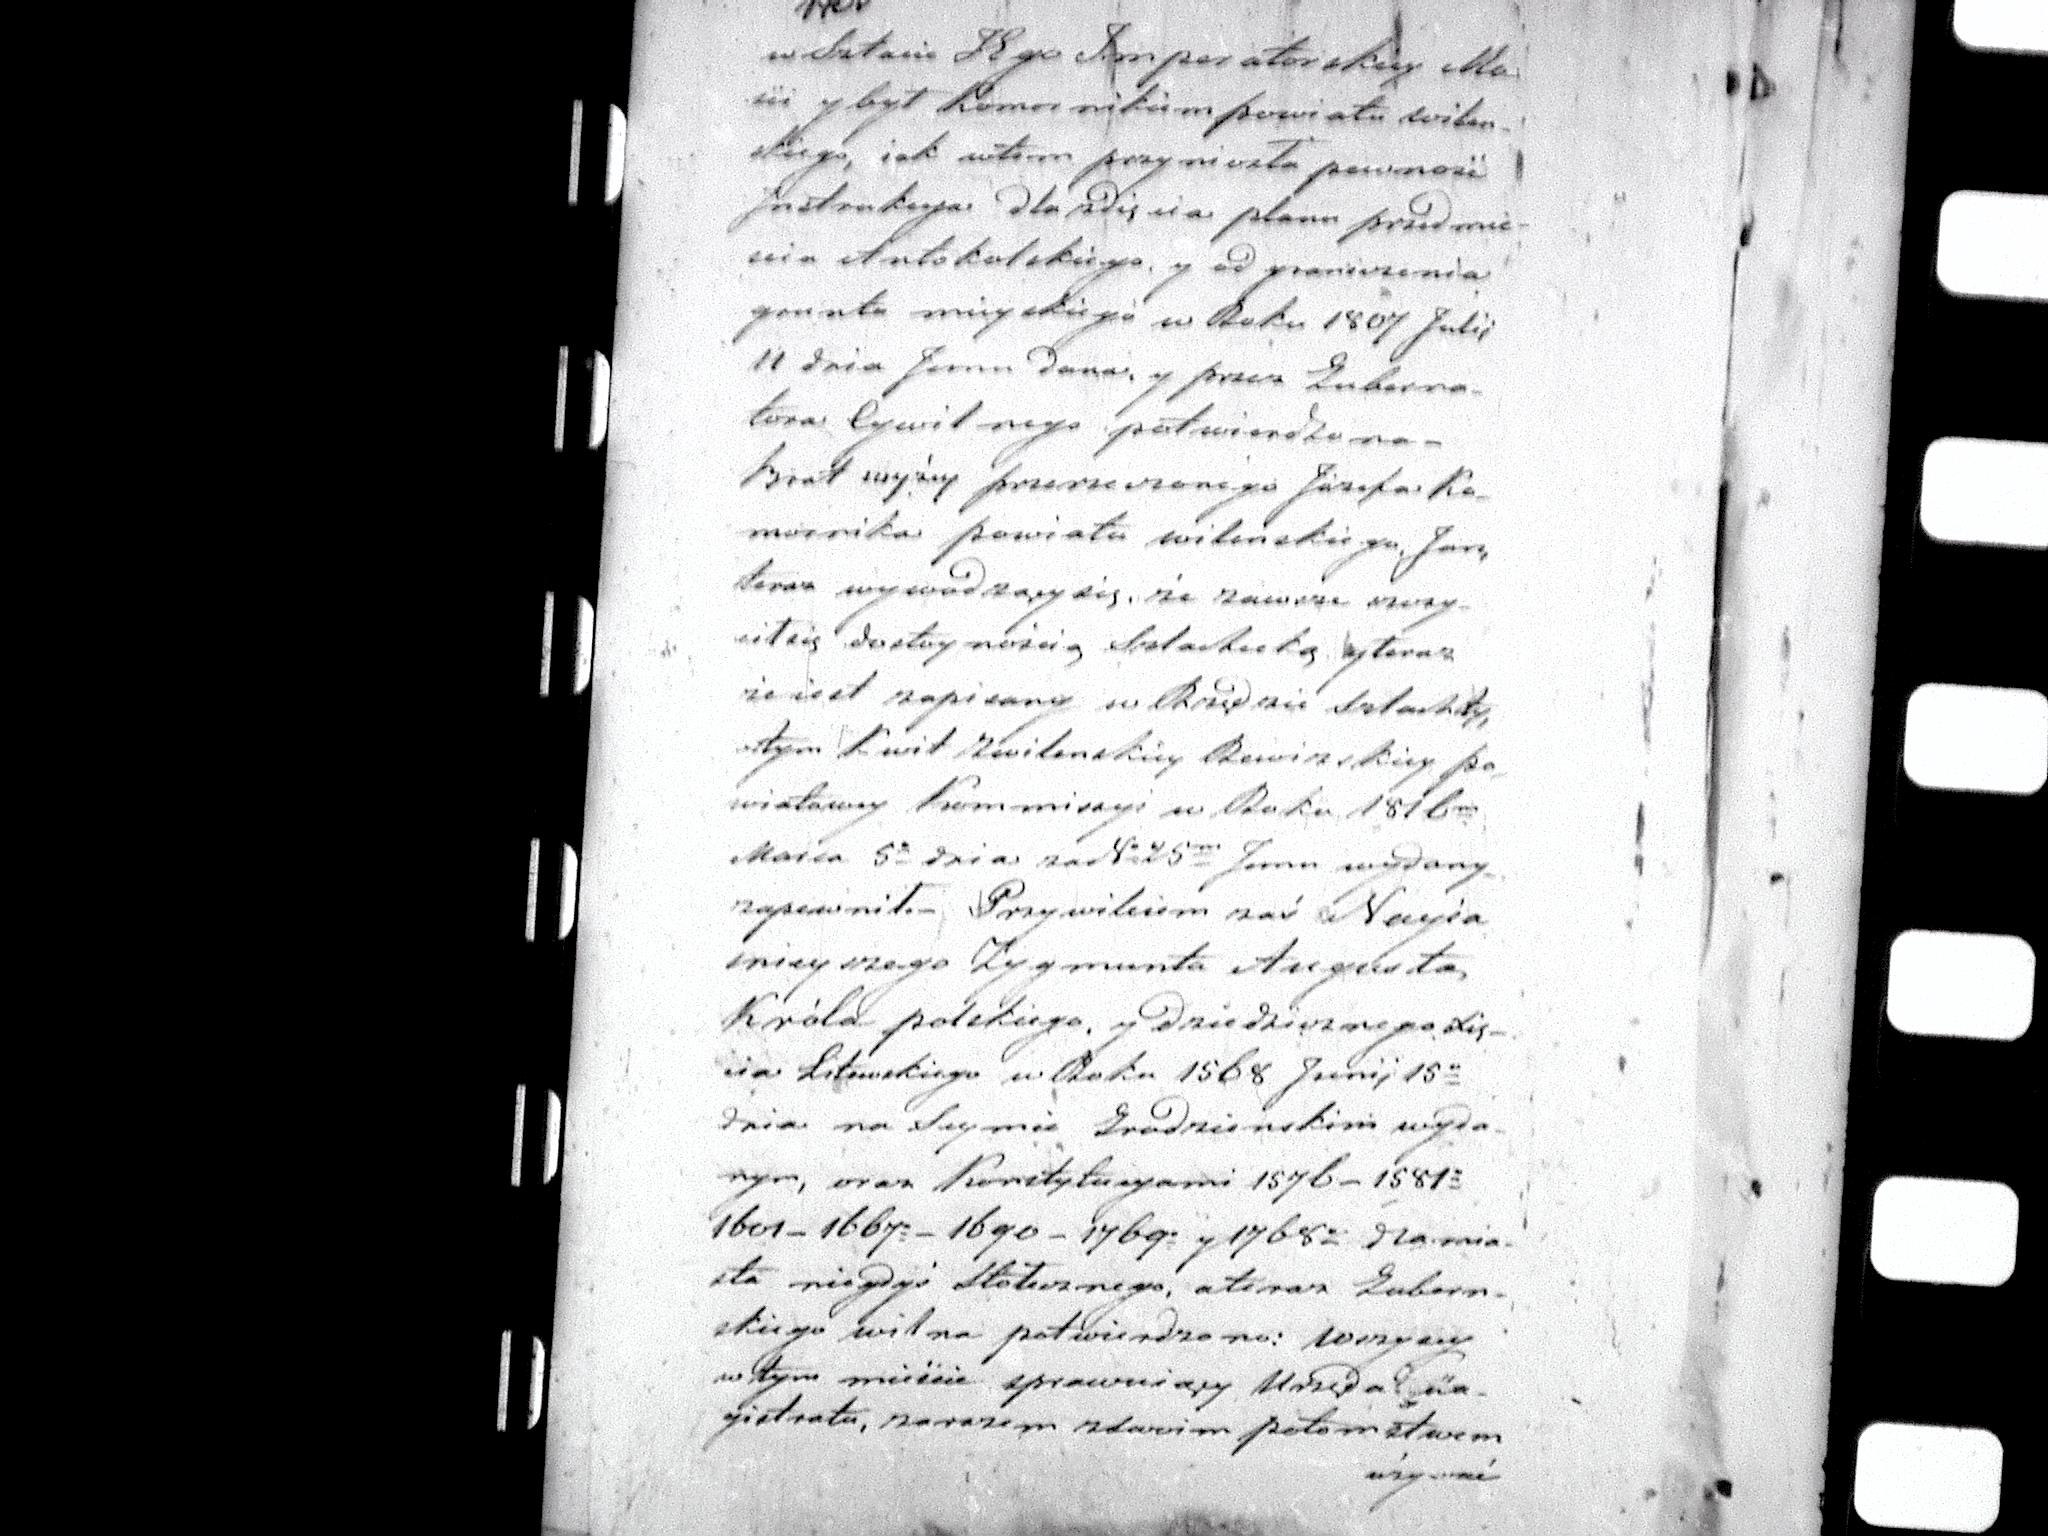 w Sztacie JEgo Imperatorskiey Mo
ści y był Komornikiem powiatu wilen-
skiego, iak wtem przyniosła pewność
Instrukcya dla zdięcia planu przedmie-
scia Antokolskiego, y od graniczenia
grunta mieyskiego w Roku 1807 Julij
11 dnia Jemu dana, y przez Guberna-
tora Cywilnego potwierdzona-
Brat wyżey przerzeczonego Józefa Ko-
mornika powiatu wilenskiego, Jan,
teraz wywodzący się, że zawsze szczy-
cił się dostoynością Szlachecką, y teraz
że iest zapisany w Rzędzie Szlachty,
o tym Kwit Zwilenskiey Rewizskiey po-
wiatowey Kommissyi w Roku 1816m
Marca 5o dnia za No 25m Jemu wydany,
zapewnił- Przywileiem zaś Nayia
snieyszego Zygmunta Augusta,
Króla polskiego, y dziedzicznego Xię-
cia Litewskiego w Roku 1568 Junij 15o
dnia na Seymie Grodzienskim wyda-
nym, oraz Konstytucyami 1576 - 1581o
1601 - 1667o - 1690 - 1764o y 1768o dla mia-
sta niegdyś Stołecznego, a teraz Gubern-
skiego wilna potwierdzono: wszyscy
w tym mieście sprawuiący Urzęda Ma-
gistratu, zarazem z swoim potomstwem
używać